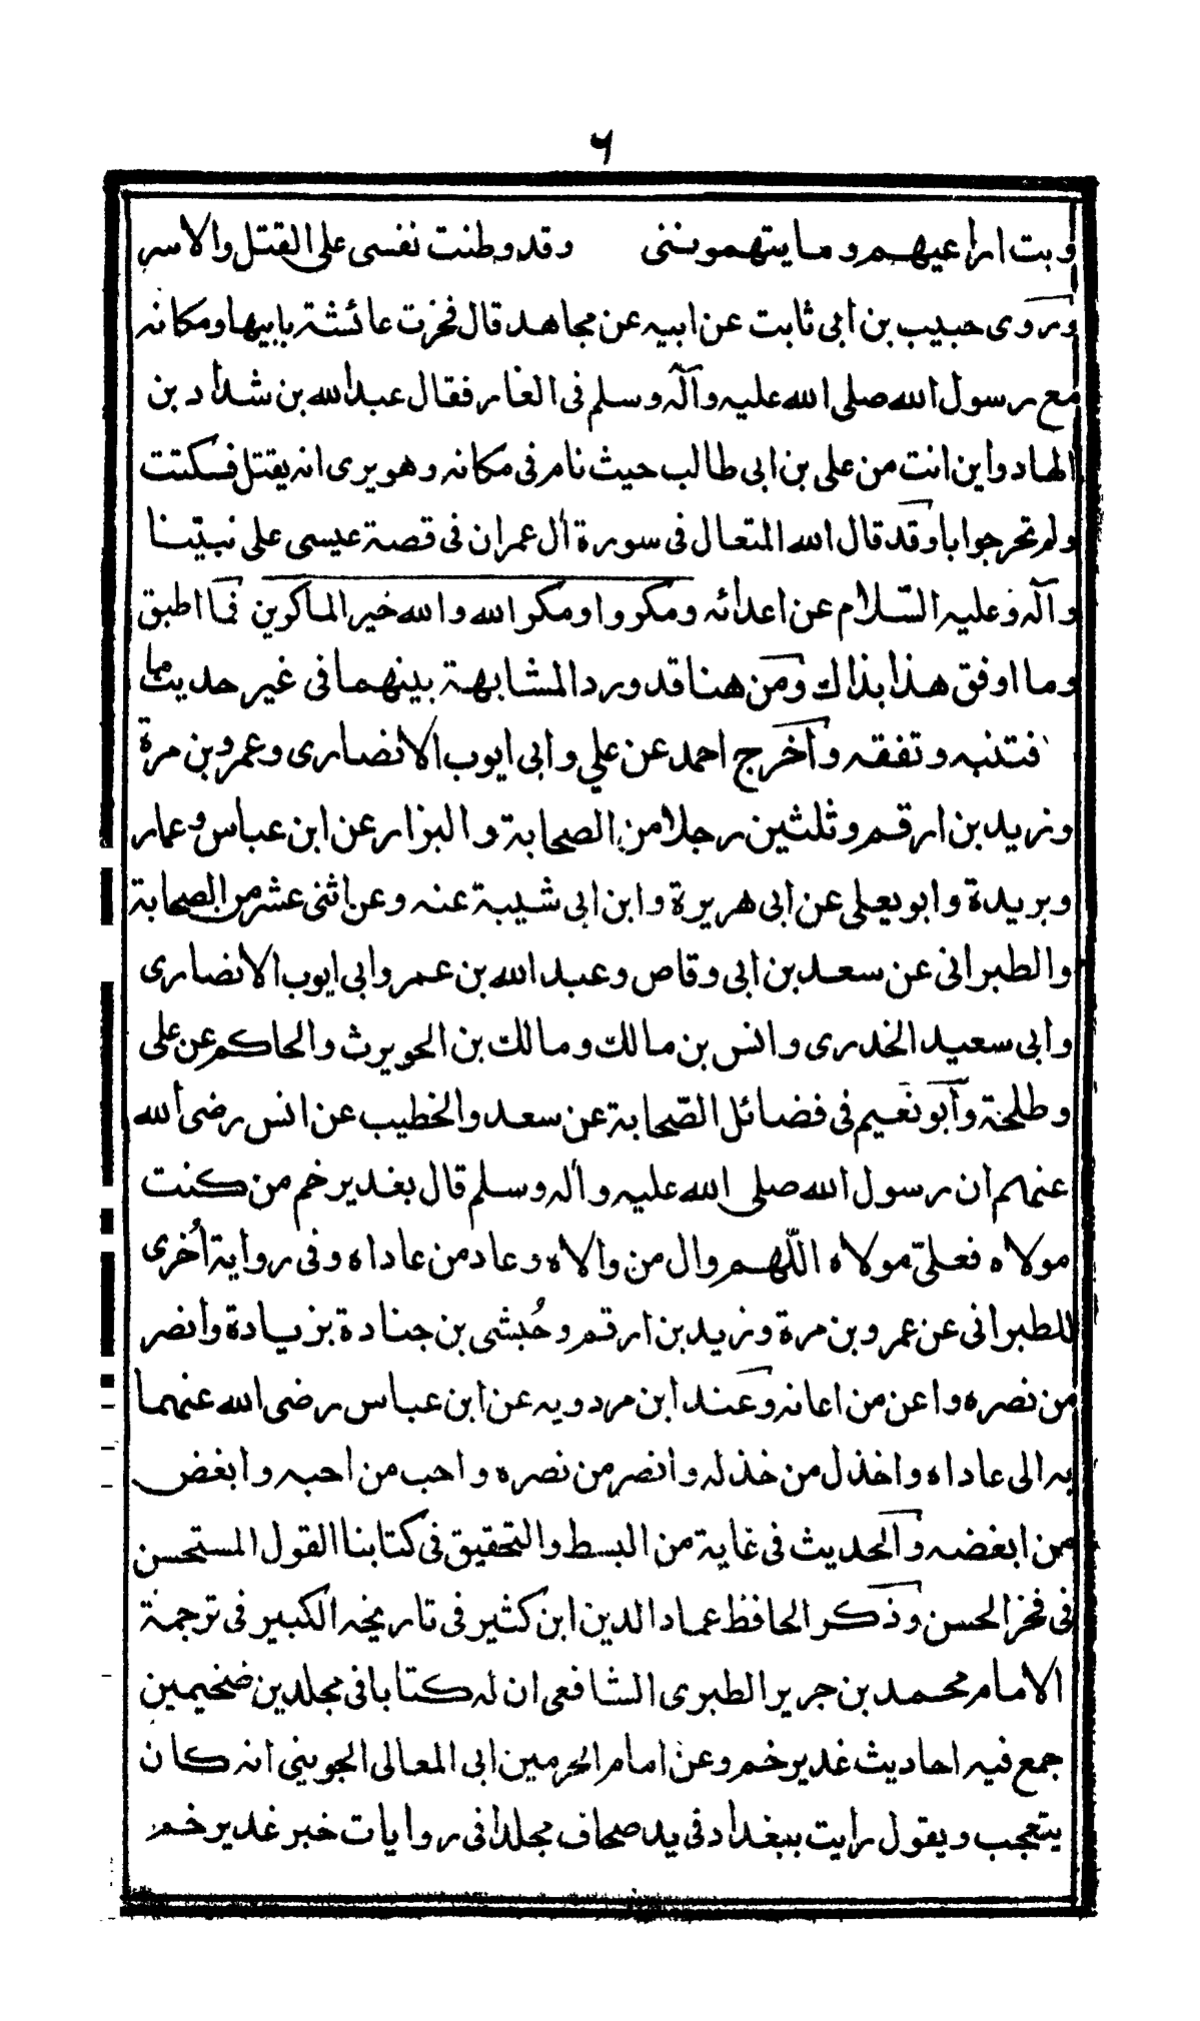 ٦
وبت اراعيهم وما يتهموننى وقد وطنت نفسى على القتل والاسر
وروى حبيب بن ابى ثابت عن ابيه عن مجاهد قال فخرت عائشة بابيها ومكانه
مع رسول الله صلى الله عليه وآله وسلم فى الغار فقال عبد الله بن شداد بن
الهاد واين انت من على بن ابى طالب حيث نام فى مكانه وهو يرى انه يقتل فسكتت
ولم تحر جوابا وقد قال الله المتعال فى سورة ال عمران فى قصة عيسى على نبيّنا
وآله وعليه السّلام عن اعدائه ومكروا ومكر الله والله خير الماكرين فما اطبق
وما اوفق هذا بذاك ومن هنا قد ورد المشابهة بينهما فى غير حديث ما
فتنبه وتفقه وآخرج احمد عن علي وابى ايوب الانصارى وعمرو بن مرة
وزيد بن ارقم وثلثين رجلا من الصحابة والبزار عن ابن عباس وعمار
وبريدة وابو يعلى عن ابى هريرة وابن ابى شيبة عنه وعن اثنى عشر من الصحابة
والطبرانى عن سعد بن ابى وقاص وعبد الله بن عمر وابى ايوب الانصارى
وابى سعيد الخدرى وانس بن مالك ومالك بن الحويرث والحاكم عن على
وطلحة وآبو نعيم فى فضائل الصّحابة عن سعد والخطيب عن انس رضى الله
عنهم ان رسول الله صلى الله عليه واله وسلم قال بغدير خم من كنت
مولاه فعلىّ مولاه اللّهم وال من والاه وعاد من عاداه وفى رواية اُخرى
للطبرانى عن عمرو بن مرة وزيد بن ارقم وحُبشى بن جنادة بزيادة وانصر
من نصره واعن من اعانه وعند ابن مردويه عن ابن عباس رضى الله عنهما
به الى عاداه واخذل من خذله وانصر من نصره واحب من احبه وابغض
من ابغضه والحديث فى غاية من البسط والتحقيق فى كتابنا القول المستحسن
فى فخر الحسن وذكر الحافظ عماد الدين ابن كثير فى تاريخه الكبير فى ترجمة
الامام محمد بن جرير الطبرى الشافعى ان له كتابا فى مجلدين ضخيمين
جمع فيه احاديث غدير خم وعن امام الحرمين ابى المعالى الجوينى انه كان
يتعجب ويقول رايت ببغداد فى يد صحاف مجلدا فى روايات خبر غدير خم